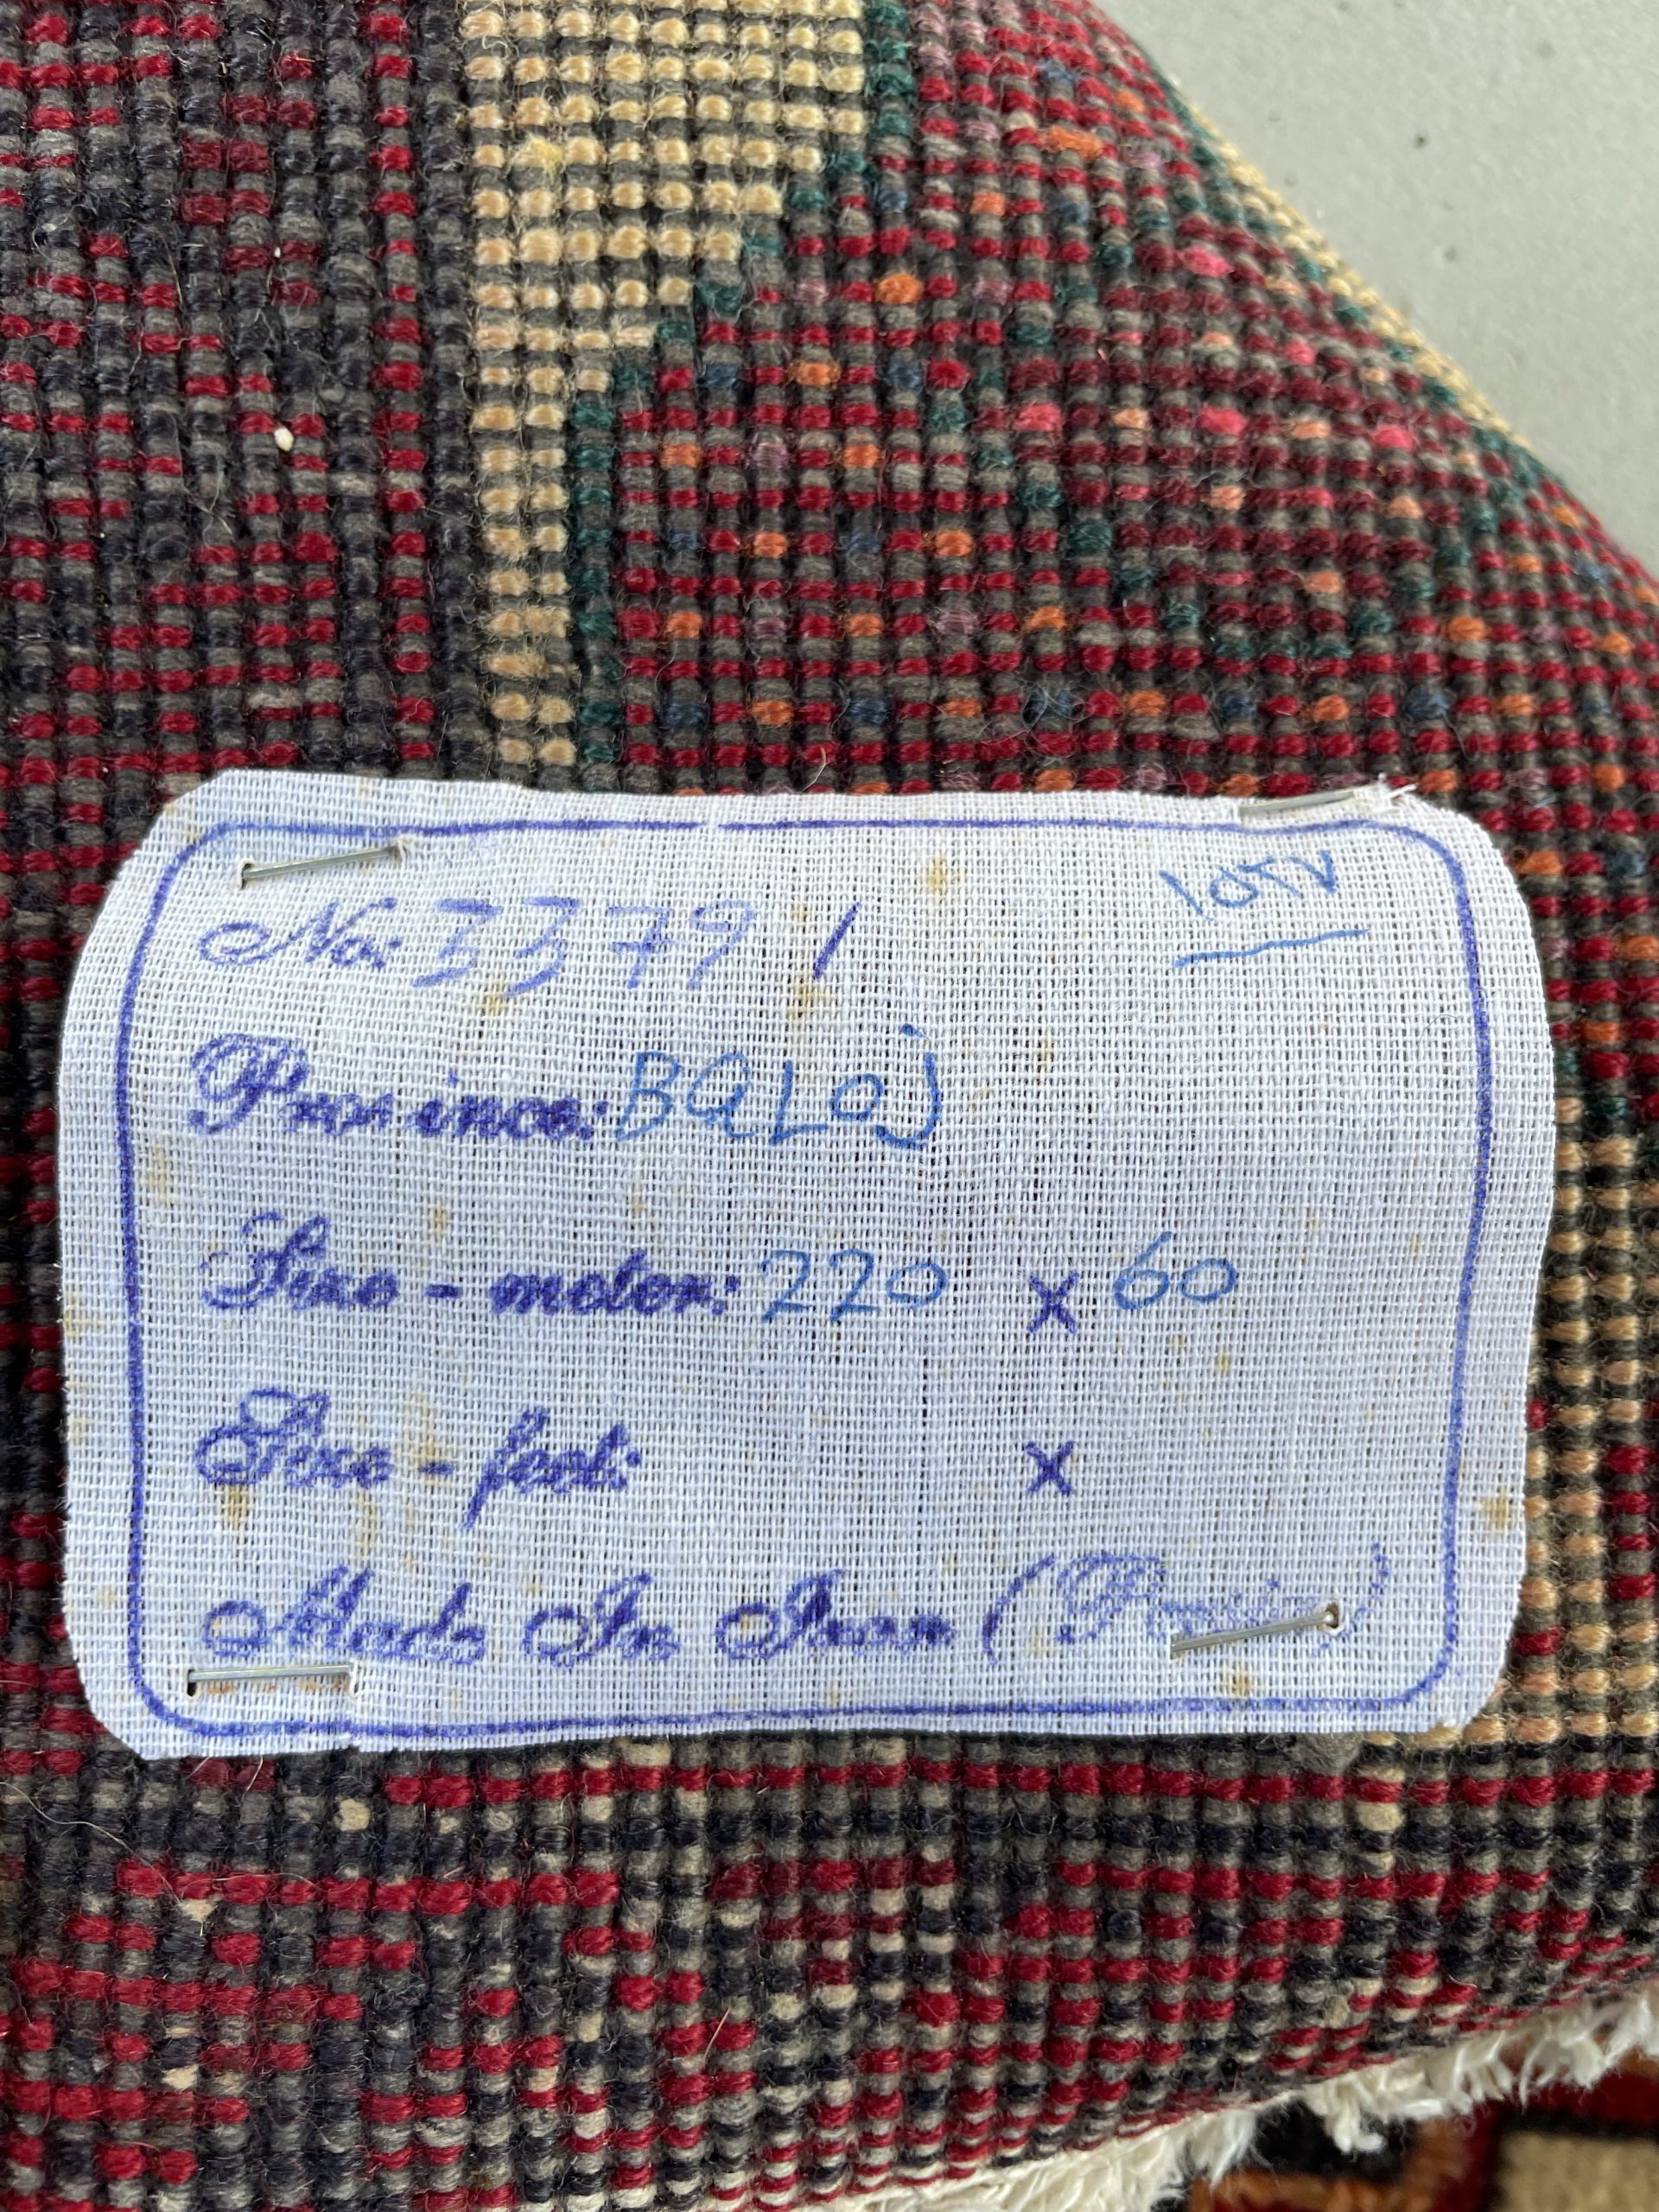 No: 33791 ۱۵۳۷
Province: BALOJ
Size - meter: 220 x 60
Size - feet: x
Made In Iran (Persia)